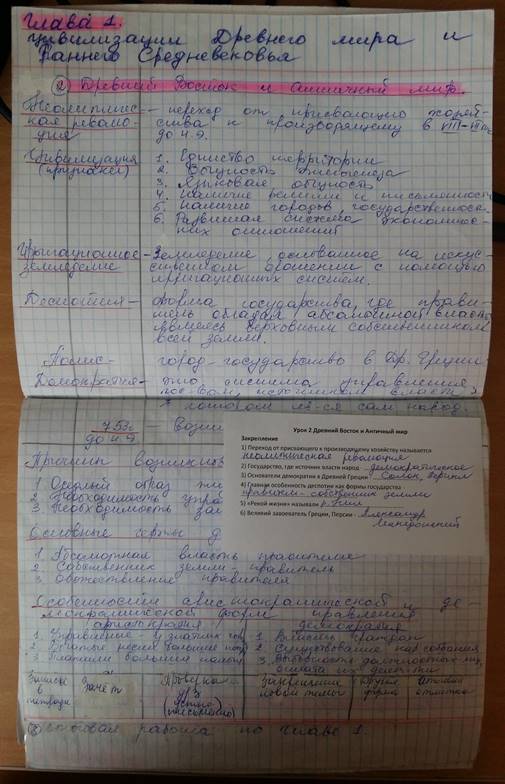 Глава 1.
Цивилизации Древнего мира и
Раннего Средневековья
② Древний Восток и античный мир.
Неолитичес- – переход от присвающего хозяй-
кая револю- ства к производящему в VIII-
ция до н.э.
Цивилизация 1. Единство территории
(признаки) 2. Общность
3. Языковая общность
4. Наличие религии и письменности
5. Наличие городов государственно
6. Развитая система экономичес-
ких отношений
Ирригационное – Земледелие, основанное на искус-
земледелие ственном орошении с помощью
ирригационных систем.
Деспотия – форма государства, где прави-
тель обладал абсолютной власт
являясь верховным собственником
всей земли.
Полис – город-государство в Др. Греции
Демократия – это система управления,
источником власти
в котором яв-ся сам народ.
753г. – Возни
до н.э.
Причины возникно
1. Особый образ
2. Необходимость упра
3. Необходимость
Основные черты д
1. Абсолютная власть правителя
2. Собственник земли – правитель
3. Обожествление правителя
Особенности аристократической и де-
мократической форм правления
аристократия демократия
1. Управление – у знатных 1. Власть граждан
2. Богатые несли большие 2. Существование нар. собрания
3. Платили большие налоги 3. Выборность должностных лиц,
оплата их
Записи в тетради зачёт Проверка д/з (устно, письменно) Закрепление новой темы Другие формы Итоговая отметка
⑧ Итоговая работа по главе 1.
Урок 2 Древний Восток и Античный мир
Закрепление
1) Переход от присвающего к производящему хозяйству называется
неолитическая революция
2) Государство, где источник власти народ - демократическое
3) Основатели демократии в Древней Греции - Солон, Перикл
4) Главная особенность деспотии как формы государства -
правитель - собственник земли
5) «Рекой жизни» называли р. Нил
6) Великий завоеватель Греции, Персии - Александр
Македонский